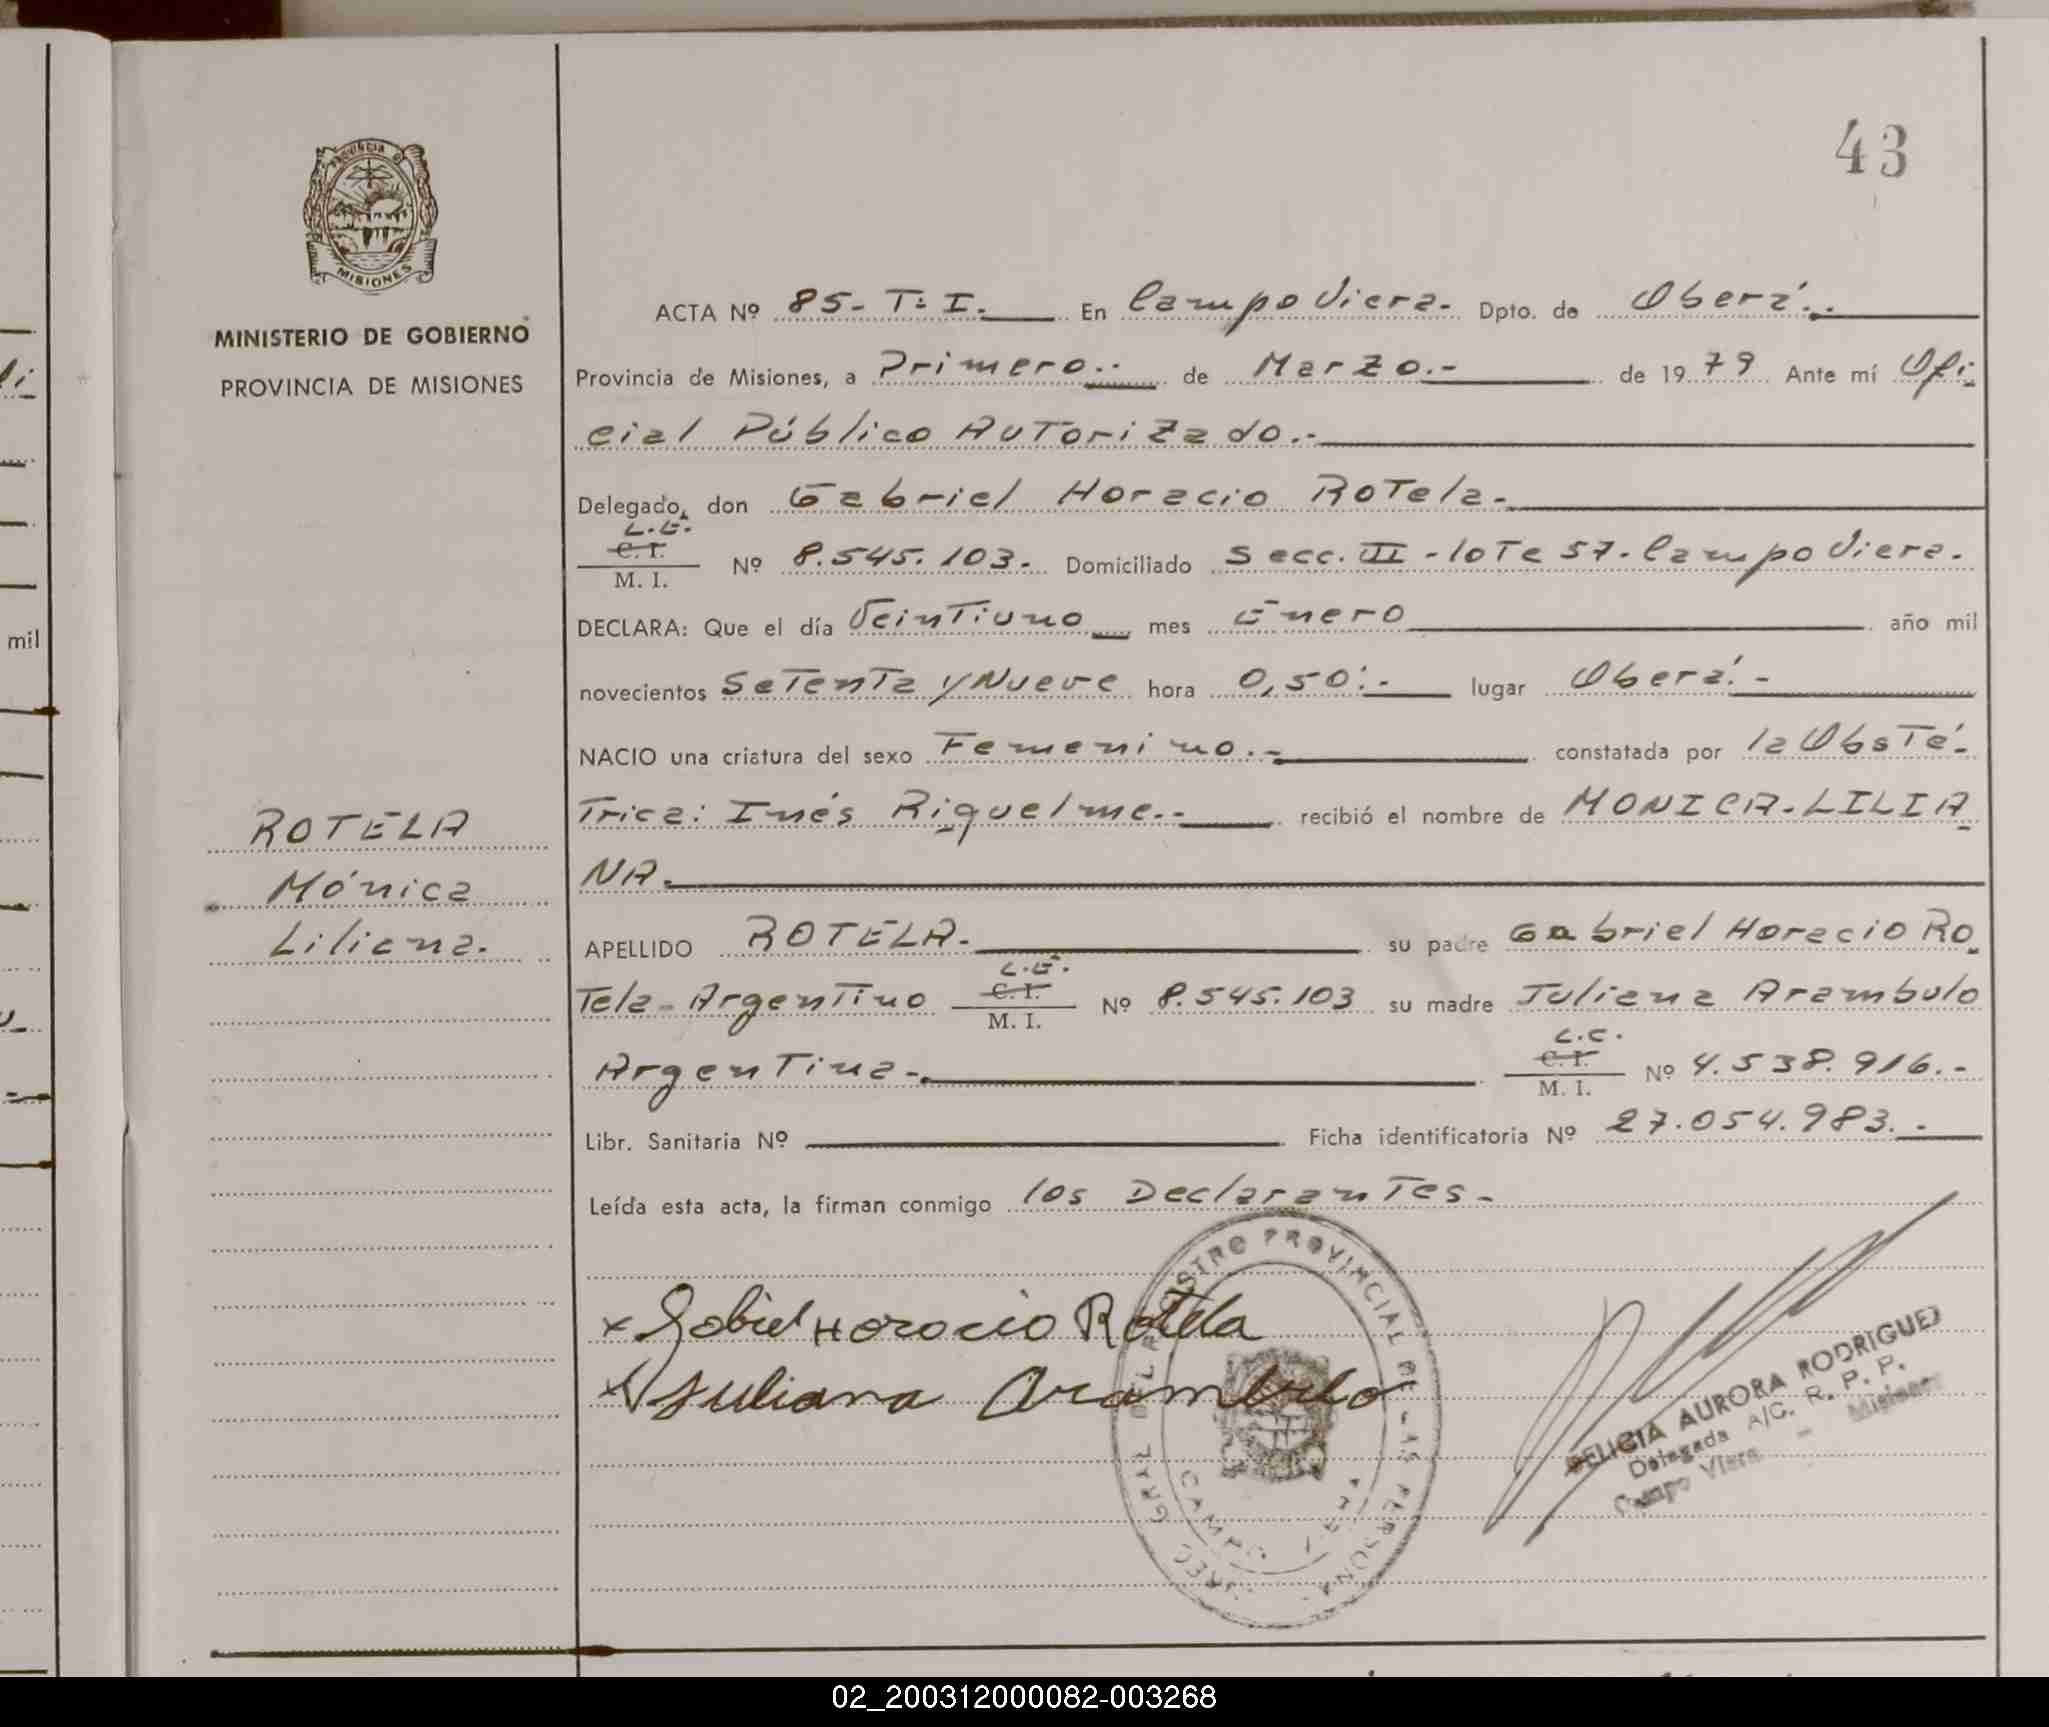 43
PROVINCIA DE
MISIONES
MINISTERIO DE GOBIERNO
PROVINCIA DE MISIONES
ROTELA
Mónica
Liliana.
ACTA Nº 85- T: I. En Campo Viera. Dpto. de Oberá.
Provincia de Misiones, a Primero.. de Marzo.- de 1979 Ante mí Ofi-
cial Público Autorizado.-
Delegado, don Gabriel Horacio Rotela.
L.E.
C. I.
M. I. Nº 8.545.103. Domiciliado Secc. III - lote 57. Campo Viera.
DECLARA: Que el día Veintiuno mes Enero año mil
novecientos Setenta y Nueve hora 0,50:- lugar Oberá.-
NACIO una criatura del sexo Femenino.- constatada por la Obsté-
trica: Inés Riquelme.- recibió el nombre de MONICA-LILIA
NA.
APELLIDO ROTELA. su padre Gabriel Horacio Ro
L.E.
tela-Argentino C. I. Nº 8.545.103 su madre Juliana Arambulo
M. I.
L.C.
Argentina-. C. I. Nº 4.538.916.-
M. I.
Libr. Sanitaria Nº Ficha identificatoria Nº 27.054.983.-
Leída esta acta, la firman conmigo los Declarantes-
x Gabriel Horacio Rotela
x Juliana Arambulo
GRAL DEL REGISTRO PROVINCIAL DE LAS PERSONAS
CAMPO VIERA
FELICIA AURORA RODRIGUEZ
Delegada A/C. R. P. P.
Campo Viera - Misiones
mil
02_200312000082-003268